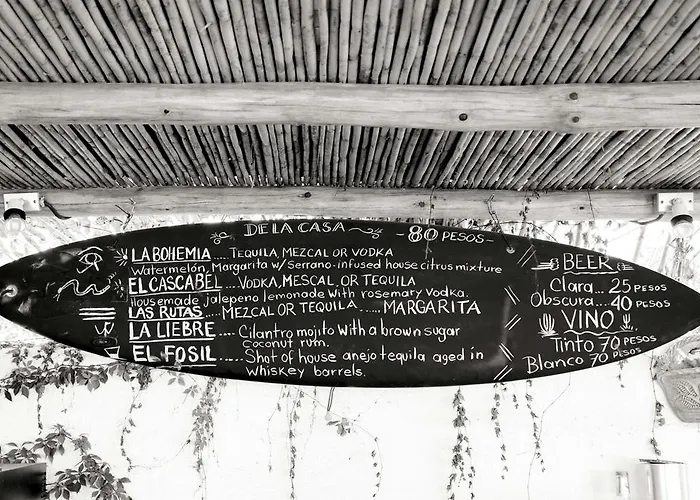 DE LA CASA -80 PESOS-
LA BOHEMIA.... TEQUILA, MEZCAL OR VODKA
Watermelon, Margarita w/ Serrano-infused house citrus mixture
EL CASCABEL ...VODKA, MESCAL, OR TEQUILA
Housemade jalepeno lemonade with rosemary vodka.
LAS RUTAS....MEZCAL OR TEQUILA.....MARGARITA
LA LIEBRE .... Cilantro mojito with a brown sugar
Coconut rum.
EL FOSIL..... Shot of house anejo tequila aged in
Whiskey barrels.
BEER
Clara... 25 PESOS
Obscura...40 PESOS
VINO
Tinto 70 PESOS
Blanco 70 PESOS